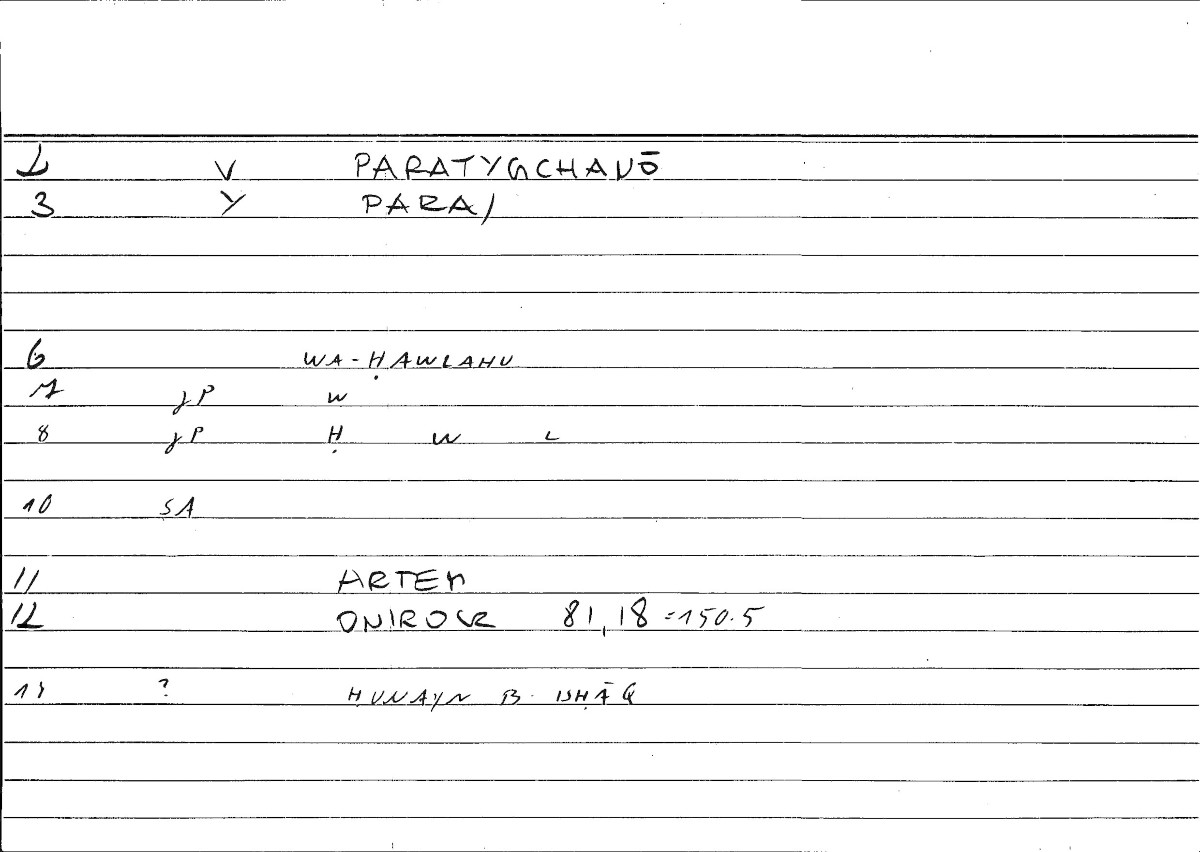 1 V PARATYGCHANŌ
3 Y PARA/
6 WA-ḤAWLAHU
7 jP W
8 jP Ḥ W L
10 SA
11 ARTEM
12 ONIROCR 81,18 =150.5
15 ? ḤUNAYN B. ISḤĀQ